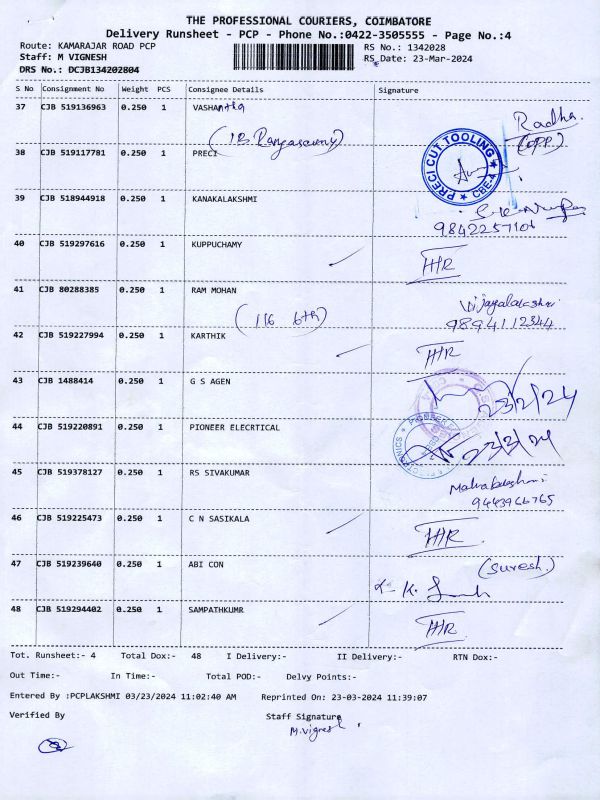 THE PROFESSIONAL COURIERS, COIMBATORE
Delivery Runsheet - PCP - Phone No.:0422-3505555 - Page No.:4
Route: KAMARAJAR ROAD PCP RS No.: 1342028
Staff: M VIGNESH RS Date: 23-Mar-2024
DRS No.: DCJB134202804
S No Consignment No Weight PCS Consignee Details Signature
37 CJB 519136963 0.250 1 VASHANtha Radha.
38 CJB 519117781 0.250 1 PRECI (OPP.)
PRECI CUT TOOLING CBE-4
39 CJB 518944918 0.250 1 KANAKALAKSHMI
9842257106
40 CJB 519297616 0.250 1 KUPPUCHAMY HR
41 CJB 80288385 0.250 1 RAM MOHAN Vijayalakshmi
(116 6th) 9894112344
42 CJB 519227994 0.250 1 KARTHIK HR
43 CJB 1488414 0.250 1 G S AGEN 23/2/24
44 CJB 519220891 0.250 1 PIONEER ELECRTICAL 23/3/24
45 CJB 519378127 0.250 1 RS SIVAKUMAR
9443966765
46 CJB 519225473 0.250 1 C N SASIKALA HR
47 CJB 519239640 0.250 1 ABI CON (Suresh.)
48 CJB 519294402 0.250 1 SAMPATHKUMR HR
Tot. Runsheet:- 4 Total Dox:- 48 I Delivery:- II Delivery:- RTN Dox:-
Out Time:- In Time:- Total POD:- Delvy Points:-
Entered By :PCPLAKSHMI 03/23/2024 11:02:40 AM Reprinted On: 23-03-2024 11:39:07
Verified By Staff Signature
M.Vignesh